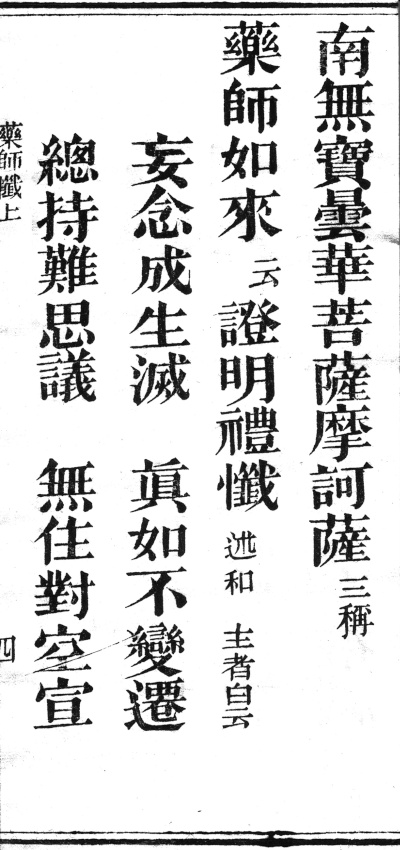 南無寶曇華菩薩摩訶薩 三稱
藥師如來 云 證明禮懺 迯和 主者白云
妄念成生滅 眞如不變遷
總持難思議 無住對空宣
藥師懺上 四